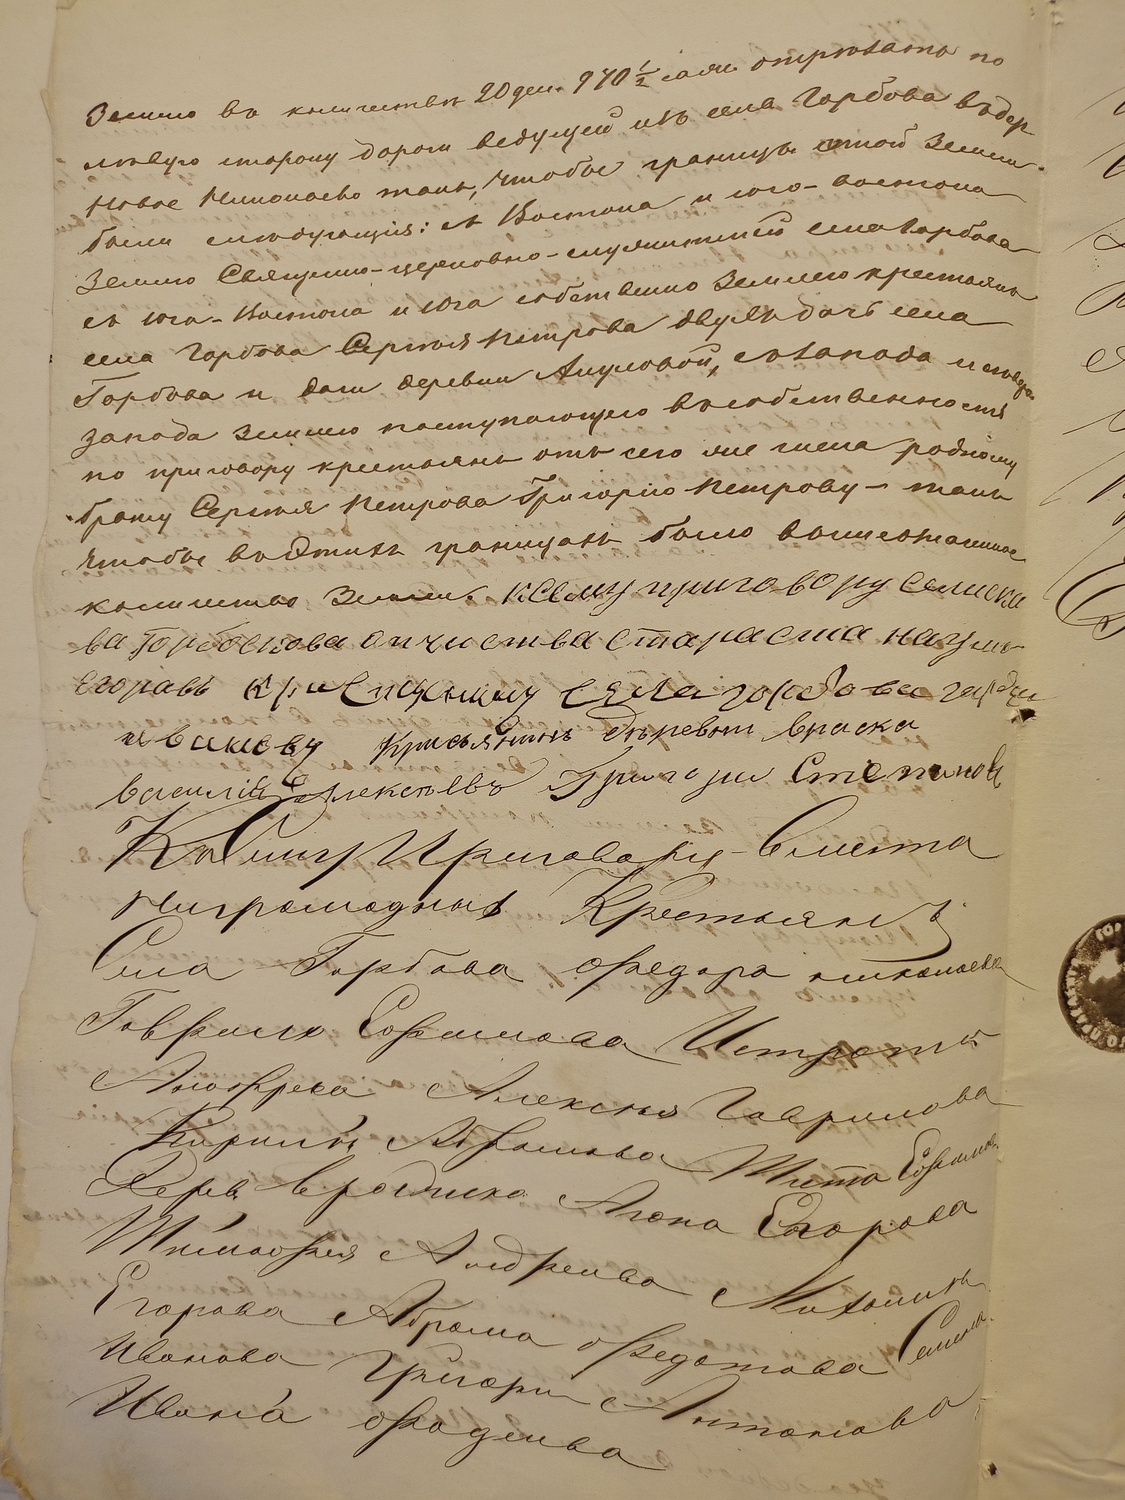 Землю въ количествѣ 20 дес. 970 1/2 саж. отрѣзать по
лѣвую сторону дороги ведущей изъ села Горбова въ дер
Новое Николаево такъ, чтобы границы этой Земли
были слѣдующія: съ Востока и юго-востока
Землю Священно-церковно-служителей села Горбова
съ юго-Востока и юга собственно Землею крестьянъ
села Горбова Сергѣя Петрова двухъ дачъ села
Горбова и дачи деревни Акуловой, съ запада и
запада Землею поступающего въ собственность
по приговору крестьянъ отъ сего же числа родному
брату Сергѣя Петрова Григорію Петрову — такъ
чтобы въ этихъ границахъ было вышеозначенное
количество Земли. Ксему приговору сельска
ва Горбоскова опчиства стараста
Егоравъ села горбова
ивановy Крисьянинъ дѣревни враска
василій Алексѣевъ Григори Степановъ
Къ Сему Приговору вместа
Ниграмодныхъ Крестьянъ
Села Горбова Федора николаева
Гаврилы Ефимова Истрата
Анофрева Алексѣя Гаврилова
Кирилы Абрамова Тита Ефимова
Дерев Агапа Егорова
Тимофея Андреива Михаила
Егорова Абрама Федотова Семена
Иванова Григори Антонова
Ивана Фадеива